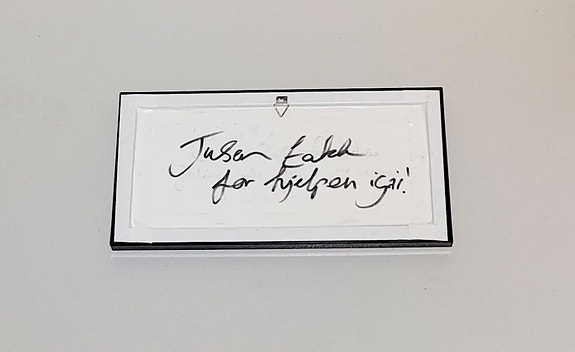 Tusen takk
for hjelpen igår!